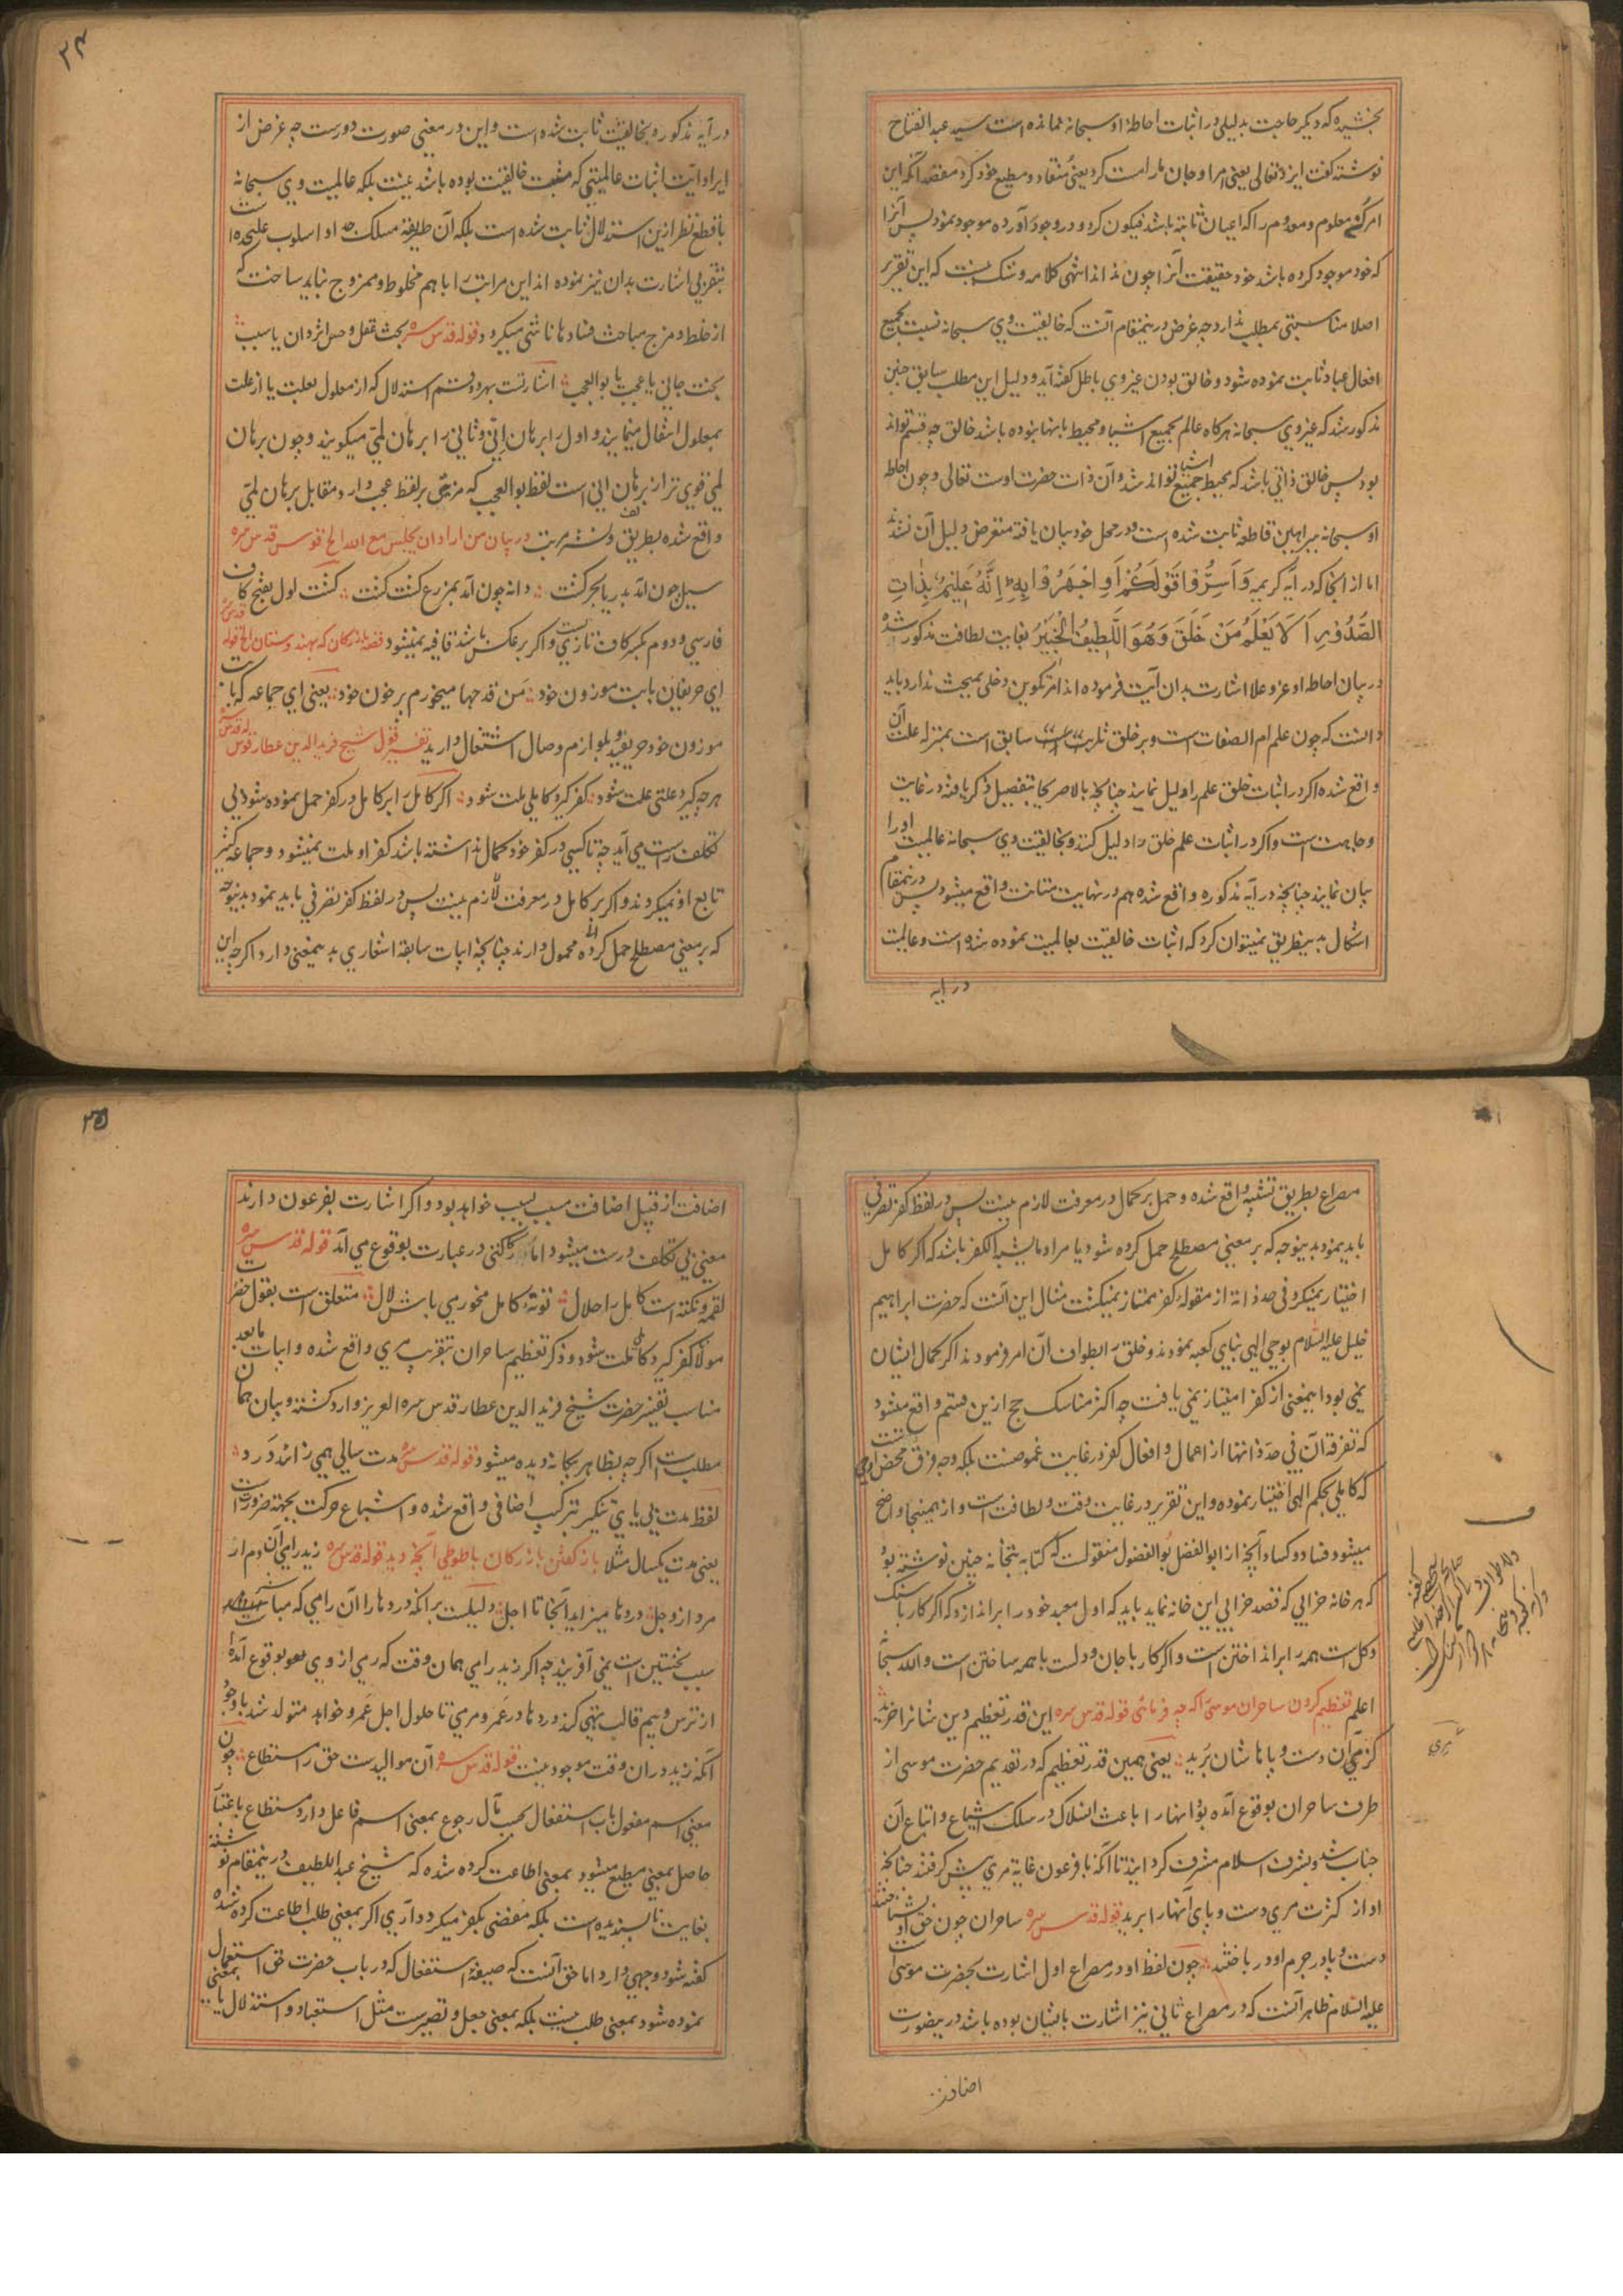 بخشیده که دیگر حاجت بدلیلی در اثبات احاطهٔ او سبحانه نمانده است سید عبد الفتاح
نوشته گفت ایزد تعالی یعنی امر او جان مارا مست کرد یعنی منقاد و مطیع خود کرد مقصد آنکه این
امر کن معلوم و معدوم را که اعیان ثابته باشد فیکون کرد و در وجود آورده موجود نمود پس آنرا
که خود موجود کرده باشد خود حقیقت آنرا چون نداند انتهی کلامه و شک نیست که این تقریر
اصلا مناسبتی بمطلب ندارد چه غرض درینمقام آنست که خالقیت وی سبحانه نسبت بجمیع
افعال عباد ثابت نموده شود و خالق بودن غیر وی باطل گفته آید و دلیل این مطلب سابق چنین
مذکور شد که غیر وی سبحانه هرگاه عالم بجمیع اشیا و محیط بانها نبوده باشد خالق چه قسم تواند
بود پس خالق ذاتی باشد که محیط جمیع اشیا تواند شد و آن ذات حضرت اوست تعالی و چون احاطه
او سبحانه ببراهین قاطعه ثابت شده است و در محل خود بیان یافته متعرض دلیل آن نشد
اما از انجا که در آیه کریمه وَاَسِرُّوا قَوْلَكُمْ اَوِ اجْهَرُوا بِهِ اِنَّهُ عَلِیْمٌ بِذَاتِ
الصُّدُوْرِ اَلَا یَعْلَمُ مَنْ خَلَقَ وَهُوَ اللَّطِیْفُ الْخَبِیْرُ بغایت لطافت مذکور شده
در بیان احاطه او عز و علا اشارت بدان آیت فرموده اند امر تکوین دخلی بمبحث ندارد باید
دانست که چون علم ام الصفات است و بر خلق سابق است بمنزله علت آن
واقع شده اگر در اثبات خلق علم را دلیل نمایند چنانچه بالا صریحا بتفصیل ذکر یافته در غایت
وجاهت است و اگر در اثبات علم خلق را دلیل کنند و بخالقیت وی سبحانه عالمیت او را
بیان نمایند چنانچه در آیه مذکوره واقع شده هم در نهایت متانت واقع میشود پس درینمقام
اشکال بدینطریق نمیتوان کرد که اثبات خالقیت بعالمیت نموده شده است و عالمیت
در آیه
۲۴
در آیه مذکوره بخالقیت ثابت شده است و این در معنی صورت دورست چه غرض از
ایراد آیت اثبات عالمیتی که مثبت خالقیت بوده باشد نیست بلکه عالمیت وی سبحانه
با قطع نظر ازین استدلال ثابت شده است بلکه آن طریقه مسلک جدا و اسلوب علیحده است
بتقریبی اشارت بدان نیز نموده اند این مراتب را باهم مخلوط و ممزوج نباید ساخت که
از خلط و مزج مباحث فسادها ناشی میگردد قوله قدس سره بحث عقل و حس اثر دان یا سبب
بحث جانی یا عجب یا بو العجب اشارتست بهر دو قسم استدلال که از معلول بعلت یا از علت
بمعلول انتقال مینمایند و اول را برهان انّی و ثانی را برهان لمّی میگویند و چون برهان
لمی قوی تر از برهان انی است لفظ بو العجب که مزیتی بر لفظ عجب دارد مقابل برهان لمّی
واقع شده بطریق لف و نشر مرتب در بیان من اراد ان یجلس مع الله الخ قدس سره
سیل چون آمد بدریا بحر گشت دانه چون آمد بمزرع گشت کشت گشت اول بفتح کاف
فارسی و دوم بکسر کاف تازی است و اگر برعکس باشد قافیه نمیشود قصه بازرگان که بهندوستان الخ قوله قدس سره
ای حریفان بابت موزون خود من قدحها میخورم پر خون خود یعنی ای جماعه که با بت
موزون خود حریفید و بلوازم وصال اشتغال دارید تفسیر قول شیخ فرید الدین عطار قدس سره
هرچه گیرد علتی علت شود کفر گیرد کاملی ملت شود اگر کامل را بر کامل در کفر حمل نموده شود بی
تکلف راست می آید چه تا کسی در کفر خود کمال نداشته باشد کفر او ملت نمیشود و جماعه کثیر
تابع او نمیگردند و اگر بر کامل در معرفت لازم نیست پس در لفظ کفر تصرفی باید نمود بدینوجه
که بر معنی مصطلح حمل کرده محمول دارند چنانچه ابیات سابقه اشعاری بدینمعنی دارد اگرچه این
مصراع بطریق تشبیه واقع شده و حمل بر کمال در معرفت لازم نیست پس در لفظ کفر تصرفی
باید نمود بدینوجه که بر معنی مصطلح حمل کرده شود یا مراد ما یشبه الکفر باشد که اگر کامل
اختیار نمیکرد فی حد ذاته از مقوله کفر ممتاز نمیگشت مثال این آنست که حضرت ابراهیم
خلیل علیه السلام بوحی الهی بنای کعبه نمودند و خلق را بطواف آن امر فرمودند اگر کمال ایشان
نمی بود اینمعنی از کفر امتیاز نمی یافت چه اکثر مناسک حج ازین قسم واقع میشود
که تفرقه آن فی حد ذاتها از اعمال و افعال کفر در غایت غموضست بلکه وجه فرق محض آنست
که کاملی بحکم الهی اختیار نموده و این تقریر در غایت دقت و لطافت است و از همینجا واضح
میشود فساد و کساد آنچه از ابو الفضل بو الفضول منقولست که کتابه بتخانه چنین نوشته بود
که هر خانه خرابی که قصد خرابی این خانه نماید باید که اول معبد خود را براندازد که اگر کار با سنگ
و گل است همه را برانداختن است و اگر کار با جان و دلست با همه ساختن است والله سبحانه
اعلم تعظیم کردن ساحران موسی را که چه فرمائی قوله قدس سره این قدر تعظیم دین شانرا خرید
کز مری آن دست و پاهاشان برید یعنی همین قدر تعظیم که در تقدیم حضرت موسی از
طرف ساحران بوقوع آمده بود انهارا باعث انسلاک در سلک اشیاع و اتباع آن
جناب شد و بشرف اسلام مشرف گردانید تا آنکه با فرعون غایة مری پیش گرفتند چنانچه
او از کثرت مری دست و پای آنهارا برید قوله قدس سره ساحران چون حق او بشناختند
دست و پا در جرم او در باختند چون لفظ او در مصراع اول اشارت بحضرت موسی است
علیه السلام ظاهر آنست که در مصراع ثانی نیز اشارت بایشان بوده باشد درینصورت
اضافت
۲۵
اضافت از قبیل اضافت مسبب بسبب خواهد بود و اگر اشارت بفرعون دارند
معنی بی تکلف درست میشود اما رکاکتی در عبارت بوقوع می آید قوله قدس سره
لقمه و نکته است کامل را حلال تو نهٔ کامل مخور می باش لال متعلق است بقول حضرت
مولانا کفر گیرد کاملی ملت شود و ذکر تعظیم ساحران بتقریب مری واقع شده و ابیات ما بعد
مناسب تفسیر حضرت شیخ فرید الدین عطار قدس سره العزیز وارد گشته و بیان همان
مطلب است اگرچه بظاهر بیگانه دیده میشود قوله قدس سره مدت سالی همی زائد درد
لفظ مدت بی یای تنکیر بترکیب اضافی واقع شده و اشباع حرکت بجهة ضرورت است
یعنی مدت یکسال مثلا باز گفتن بازرگان با طوطی آنچه دید قوله قدس سره زید رامی آن دم ار
مرد از وجل دردها میزاید آنجا تا اجل دلیلست بر آنکه دردها را آن رامی که مباشر
سبب نخستین است نمی آفریند چه اگر زید رامی همان وقت که رمی از وی بوقوع آمده
از ترس و بیم قالب تهی کند دردها در عمرو مرمی تا حلول اجل عمرو خواهد متولد شد با وجود
آنکه زید در ان وقت موجود نیست قوله قدس سره آن موالید ست حق را مستطاع چون
معنی اسم مفعول باب استفعال بحسب مآل رجوع بمعنی اسم فاعل دارد مستطاع باعتبار
حاصل بمعنی مطیع میشود بمعنی اطاعت کرده شده که شیخ عبد اللطیف درینمقام نوشته
بغایت ناپسندیده است بلکه مفضی بکفر میگردد آری اگر بمعنی طلب اطاعت کرده شده
گفته شود وجهی دارد اما حق آنست که صیغه استفعال که در باب حضرت حق استعمال
نموده شود بمعنی طلب نیست بلکه بمعنی جعل و تصییر ست مثل استعباد و استذلال یا بمعنی